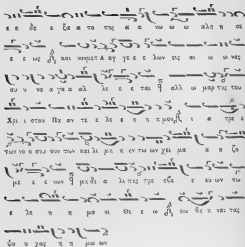 ε ε δε ε ξα α το της α α νω ω ω κλη η σε
ε ε ως και αγ γε ε ε λων εις αι ω νας
συ υ να α γα α αλ λε ε ε ται αλλ ω μαρ τυς του
Χρι ι στου Παν αν τε ε λε ε η η η μον ι α τρε ε
των νο ο σου ουν των και λι μη η εν των χει μα α α ζο
με ε ε νων μη δι α λι πης πρε σβε ε ευ ων τω
ε λε η η μο νι Θε ε ω σω θη η ναι τας
ψυ υ χας η η μω ων